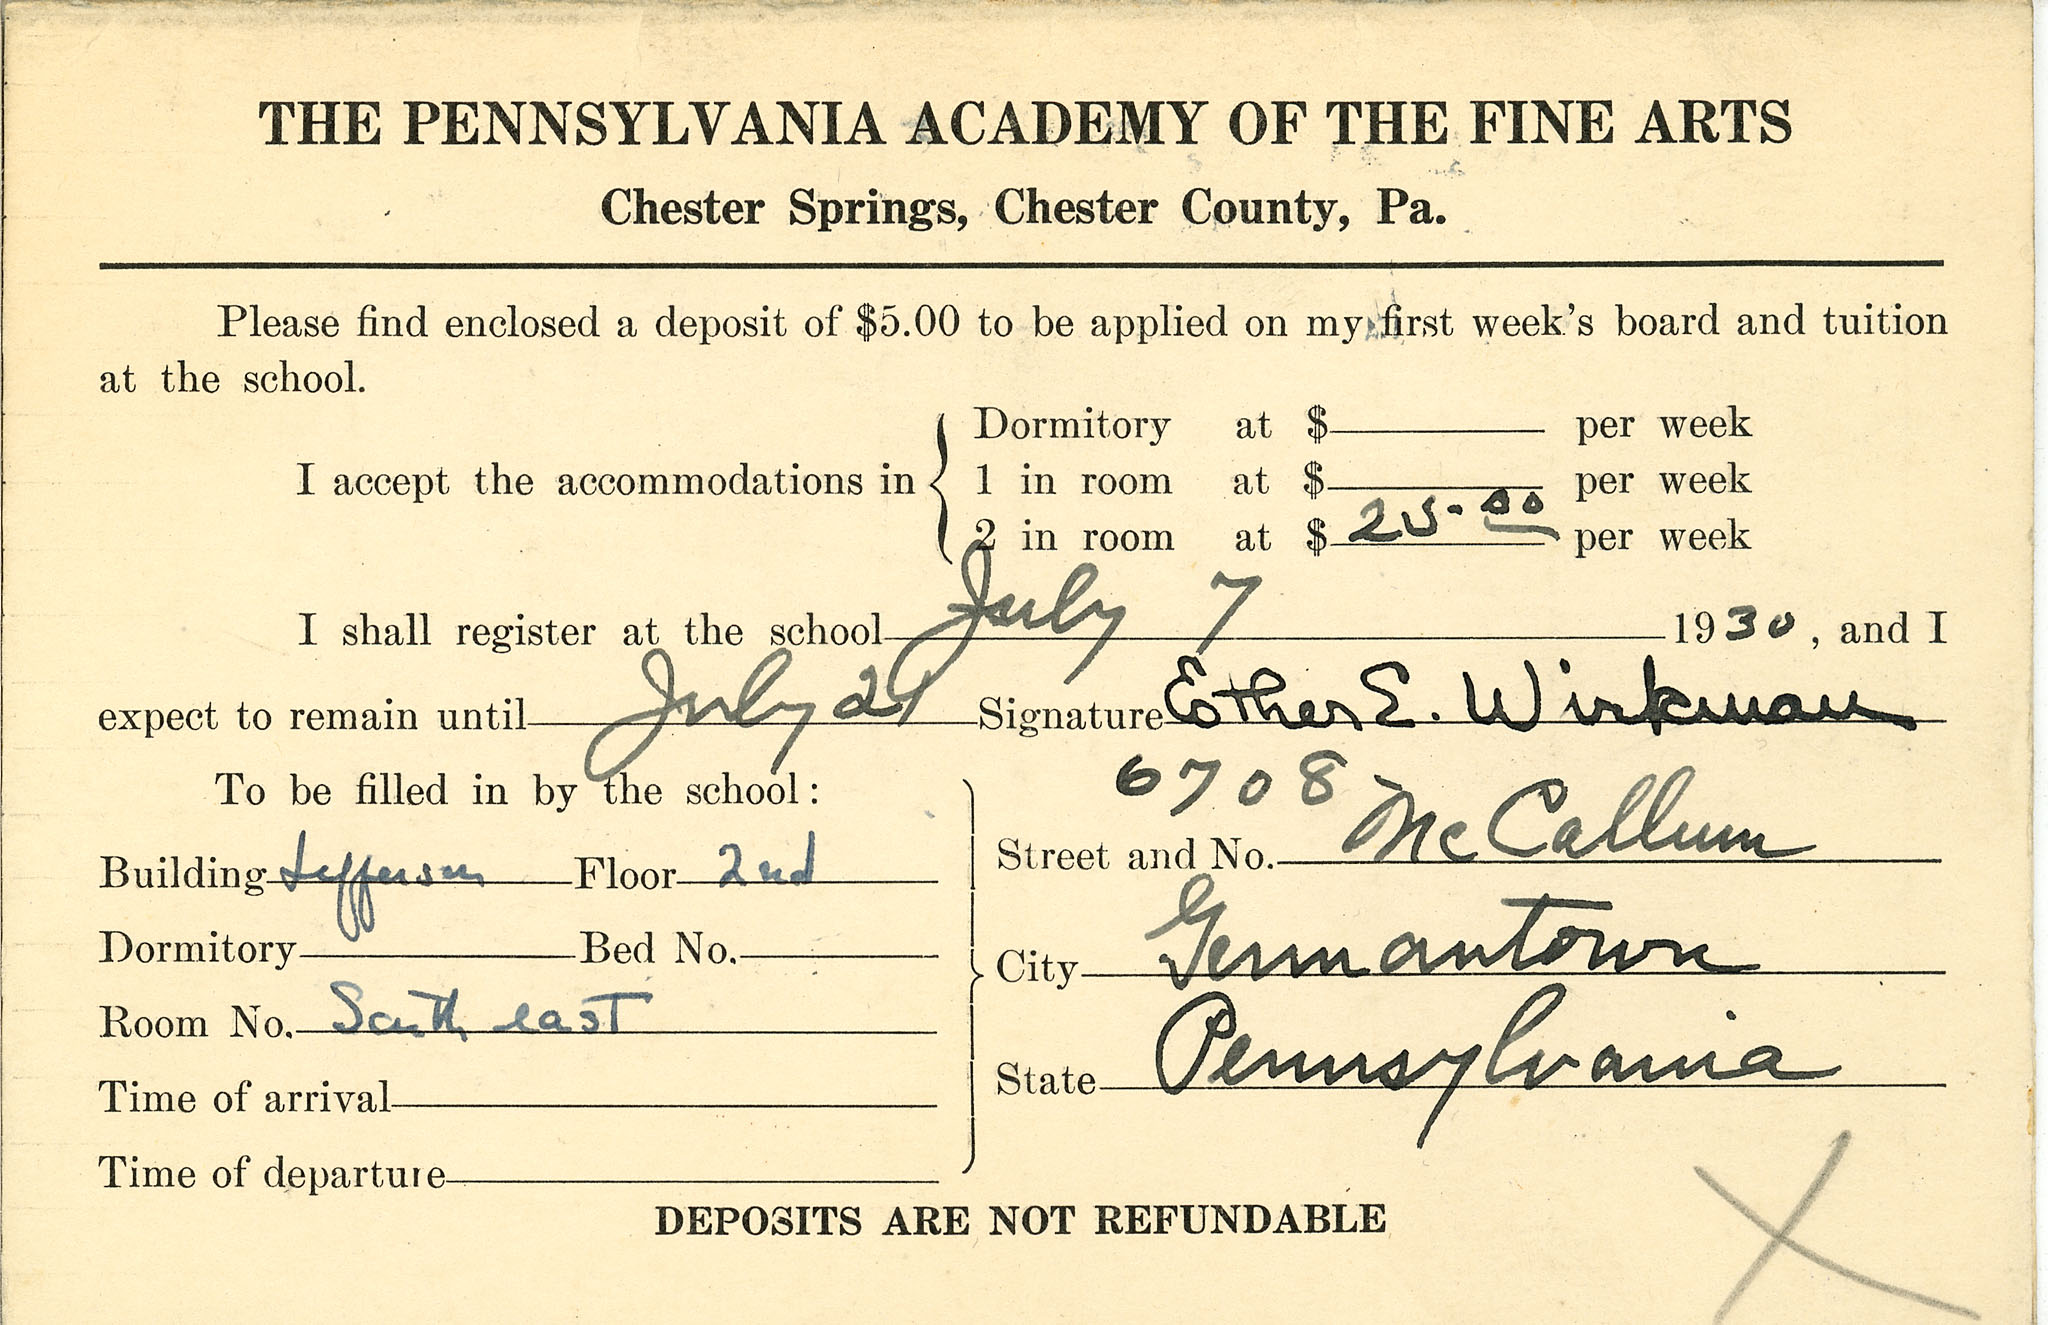 THE PENNSYLVANIA ACADEMY OF THE FINE ARTS
Chester Springs, Chester County, Pa.
Please find enclosed a deposit of $5.00 to be applied on my first week's board and tuition
at the school.
I accept the accommodations in
Dormitory at $ per week
1 in room at $ per week
2 in room at $ 25.00 per week
I shall register at the school July 7 1930, and I
expect to remain until July 21 Signature Esther E. Wirkman
To be filled in by the school:
Building Jefferson Floor 2nd
Dormitory Bed No.
Room No. South east
Time of arrival
Time of departure
6708
Street and No. McCallum
City Germantown
State Pennsylvania
DEPOSITS ARE NOT REFUNDABLE